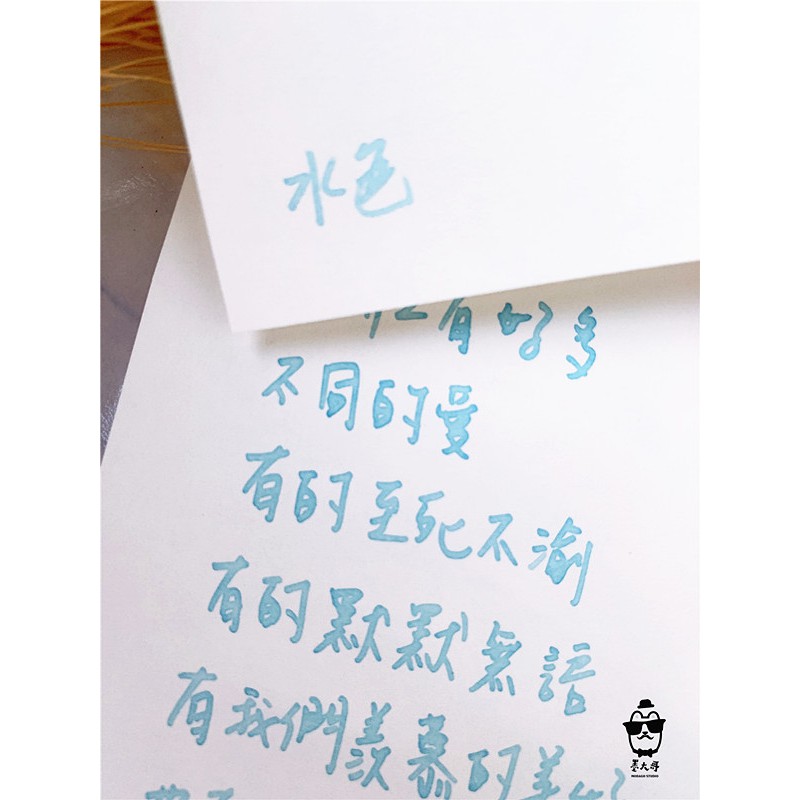 水色
有好多
不同的愛
有的至死不渝
有的默默無語
有我們羨慕的美好
墨大哥
STUDIO